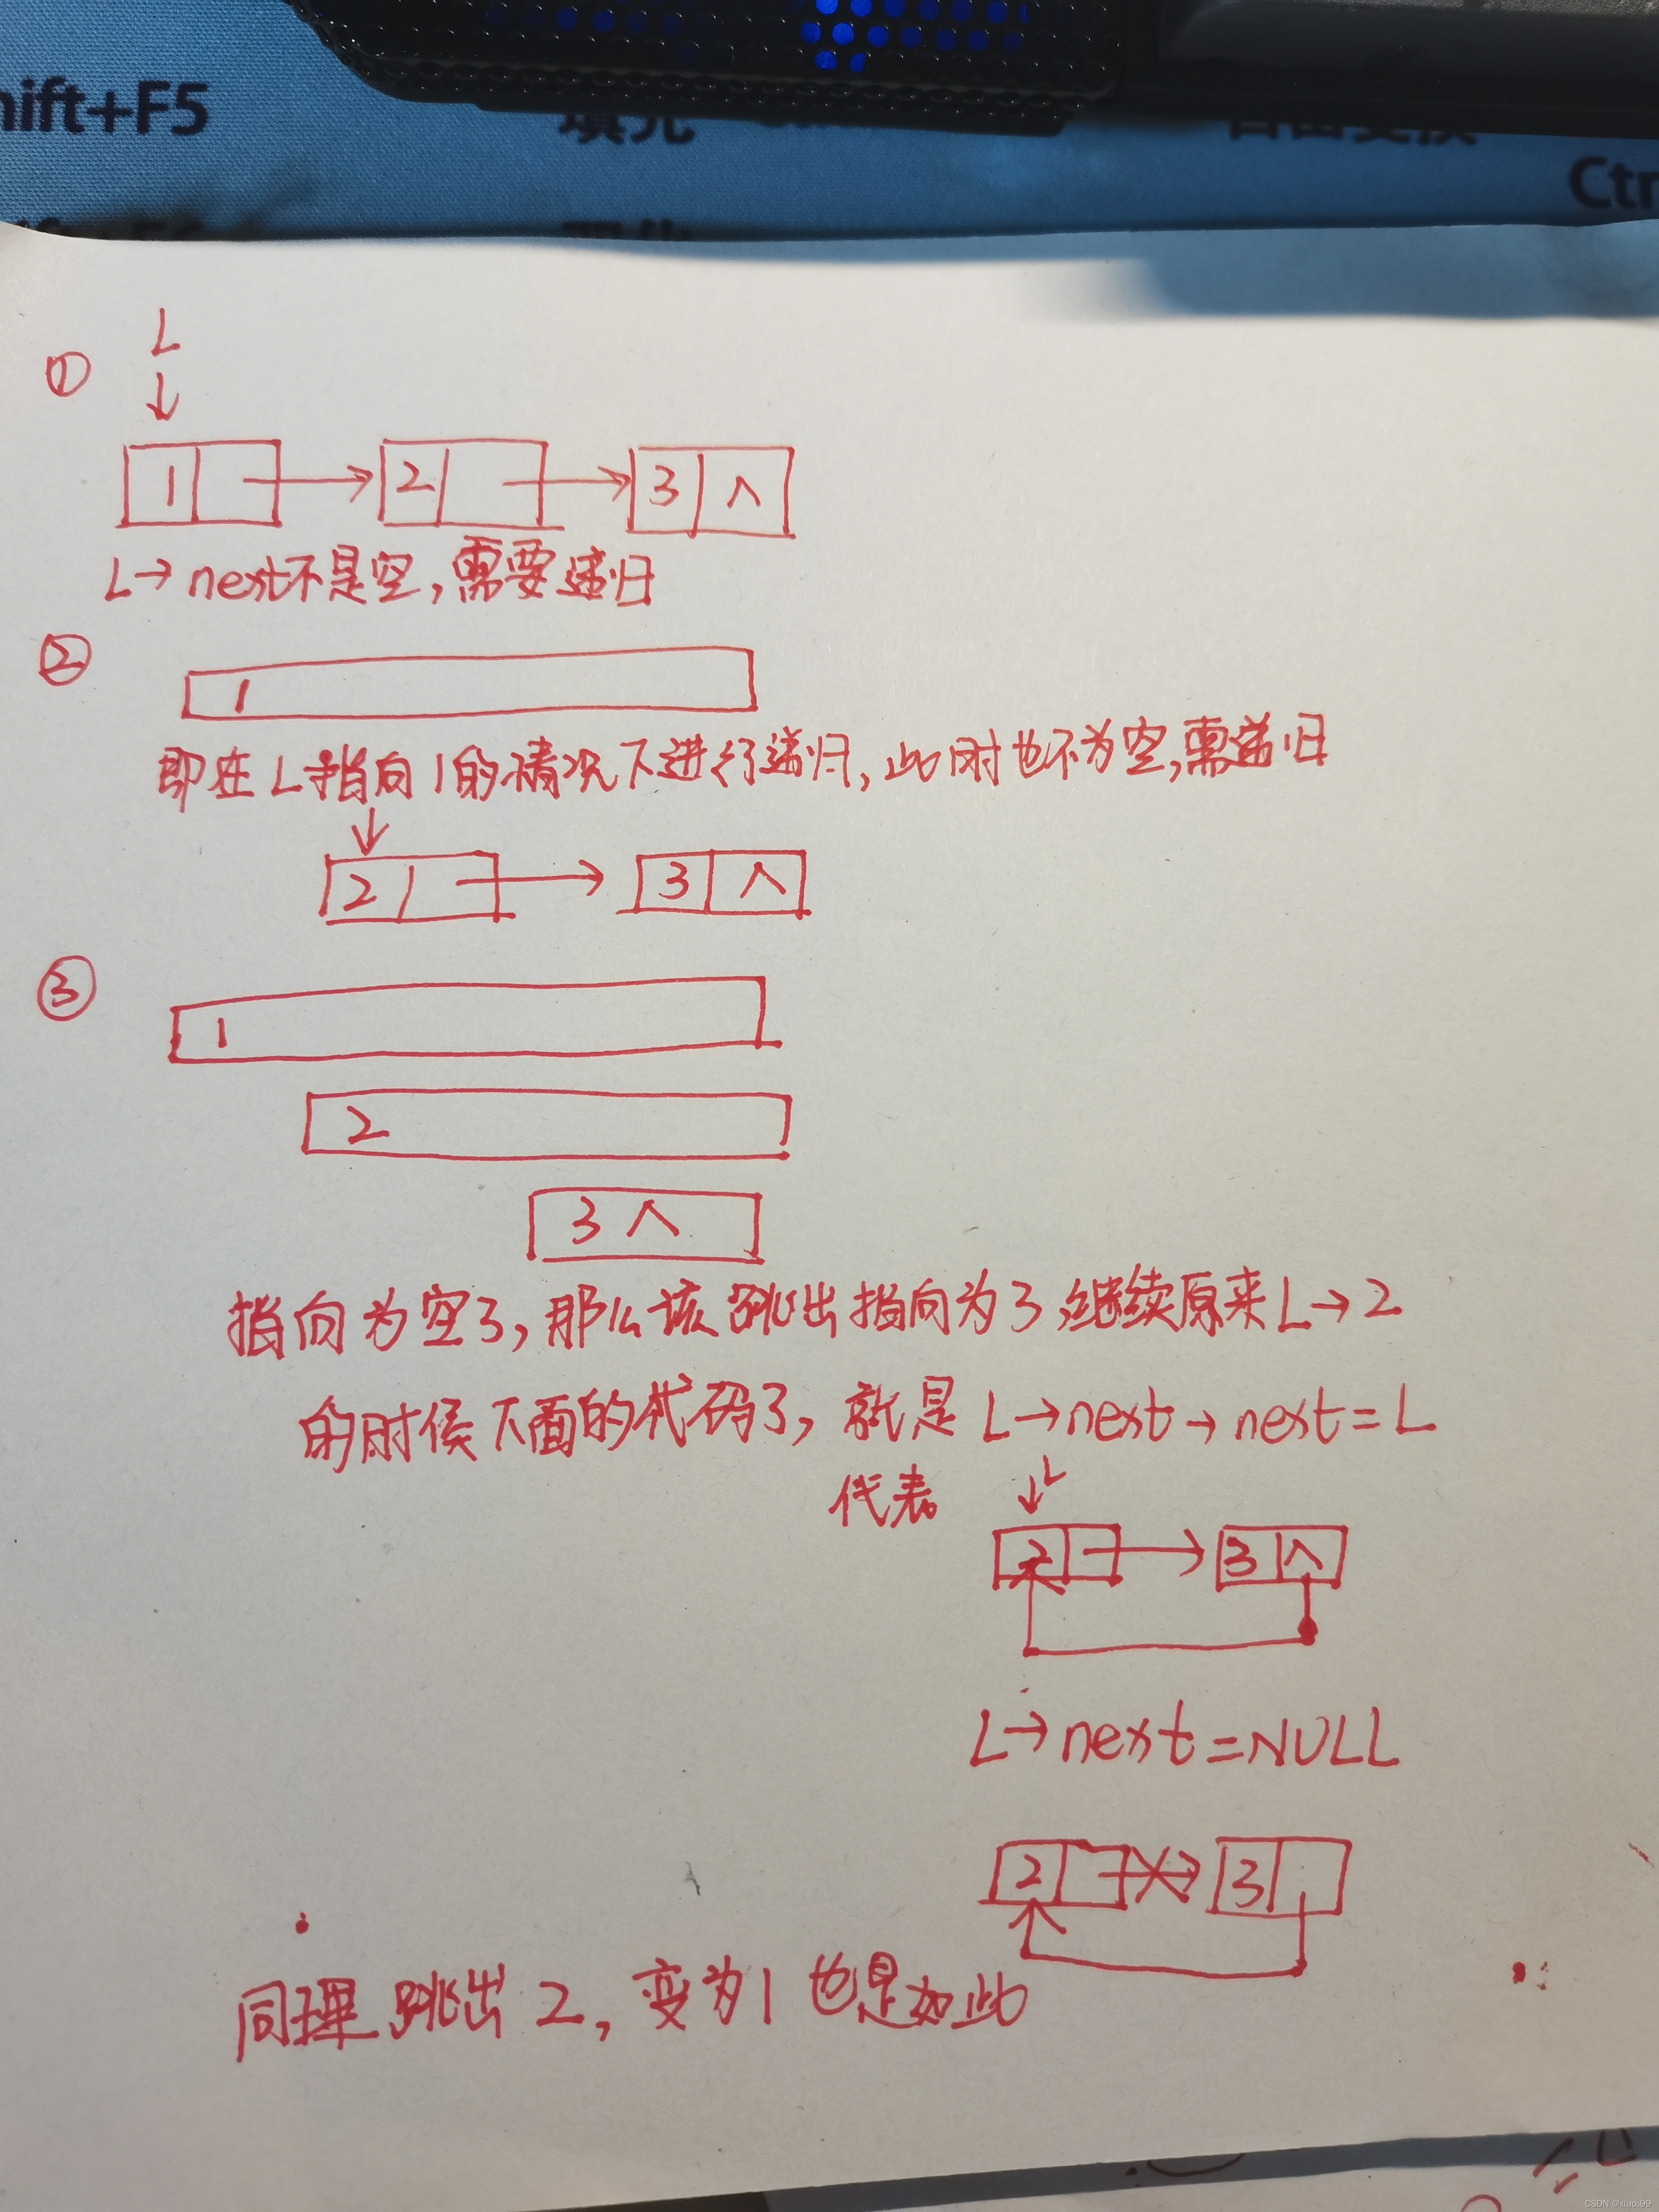 hift+F5
填充
Ctr
L
①
1 2 3 ∧
L→next不是空,需要递归
②
1
即在L指向1的情况下进行递归,此时也不为空,需递归
2 3 ∧
③
1
2
3 ∧
指向为空了,那么该跳出指向为3,继续原来L→2
的时候下面的代码了,就是L→next→next=L
代表
L
2 3 ∧
L→next=NULL
2 3
同理跳出2,变为1也是如此
CSDN @xiao.99